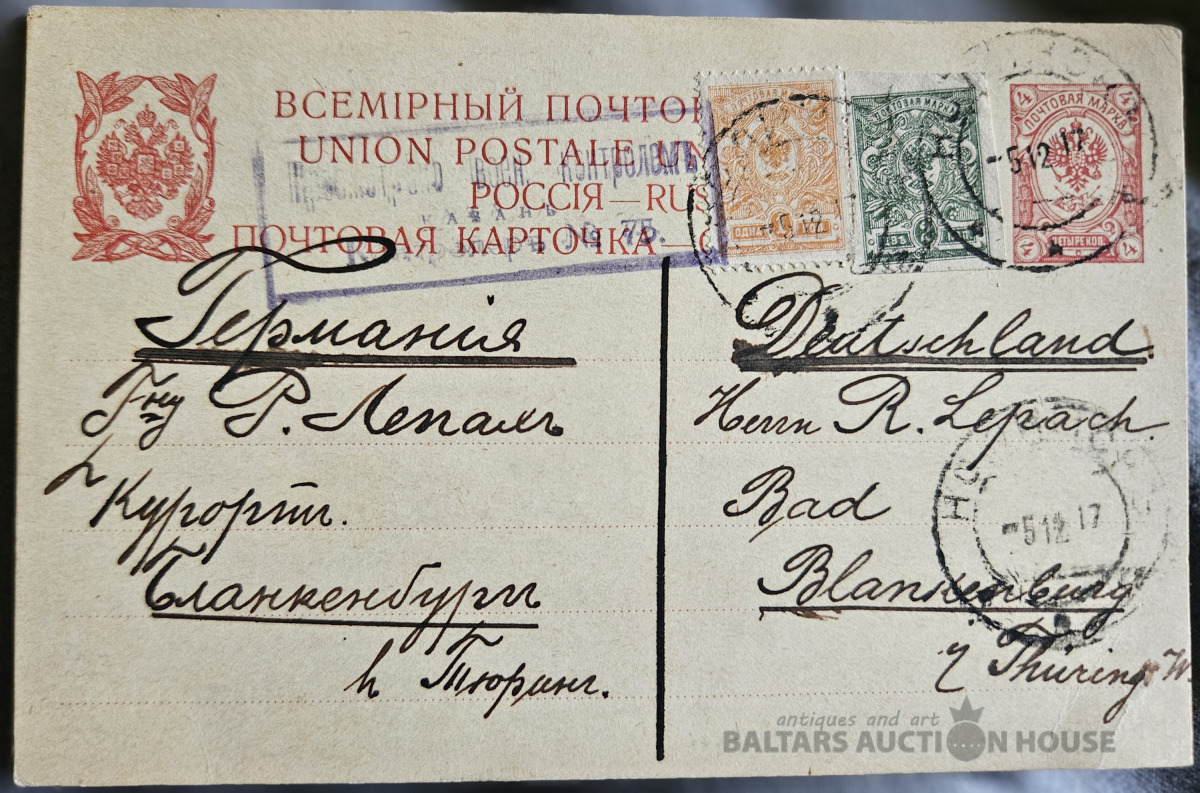 ВСЕМІРНЫЙ ПОЧТОВ
UNION POSTALE UN
РОССІЯ—RUS
ПОЧТОВАЯ КАРТОЧКА—C
военн. контролемъ
КАЗАНЬ
№ 75.
ПОЧТОВАЯ МАРКА
4
4
ПОЧТОВАЯ МАРКА
-5 12 17
4
4
Германія
Г-ну Р. Лепахъ
Курортъ.
Бланкенбургъ
Тюринг.
Deutschland.
Herrn R. Lepach.
Bad
Blankenburg
Thüring. W.
-5 12 17
antiques and art
BALTARS AUCTION HOUSE